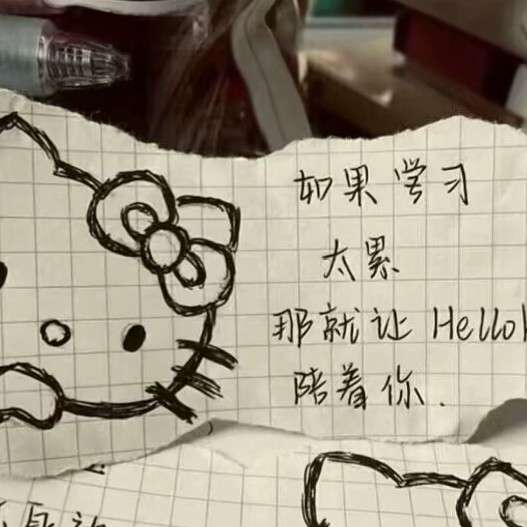 如果学习
太累
那就让 Hello
陪着你.